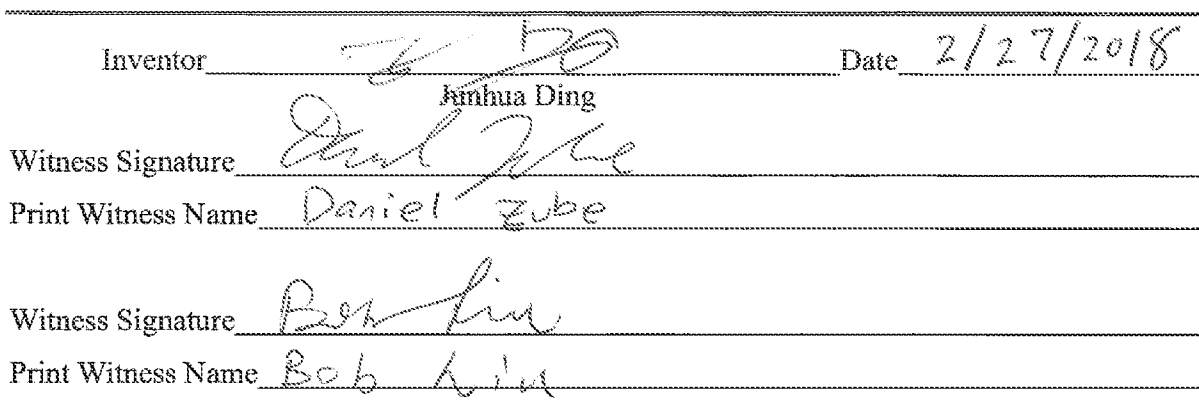 Inventor Date 2/27/2018
Junhua Ding
Witness Signature
Print Witness Name Daniel Zube
Witness Signature
Print Witness Name Bob